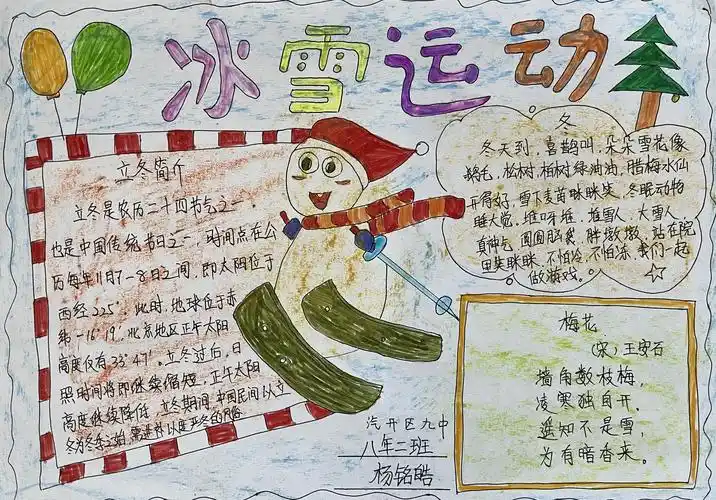 冰雪运动
立冬简介
立冬是农历二十四节气之一，
也是中国传统节日之一，时间点在公
历每年11月7-8日之间，即太阳位于
西经225°，此时，地球位于赤
纬-16°19'，北京地区正午太阳
高度仅有33°47'。立冬过后，日
照时间将即继续缩短，正午太阳
高度继续降低。立冬期间，中国民间以立
冬为冬季之始，需进补以度严冬的
冬
冬天到，喜鹊叫，朵朵雪花像
鹅毛，松树，柏树绿油油，腊梅水仙
开得好，雪下麦苗眯眯笑，冬眠动物
睡大觉，堆呀堆，堆雪人，大雪人，
真神气，圆圆脑袋，胖墩墩，站在院
里笑眯眯，不怕冷，不怕冻，我们一起
做游戏。
梅花
（宋）王安石
墙角数枝梅，
凌寒独自开，
遥知不是雪，
为有暗香来。
汽开区九中
八年二班
杨铭皓